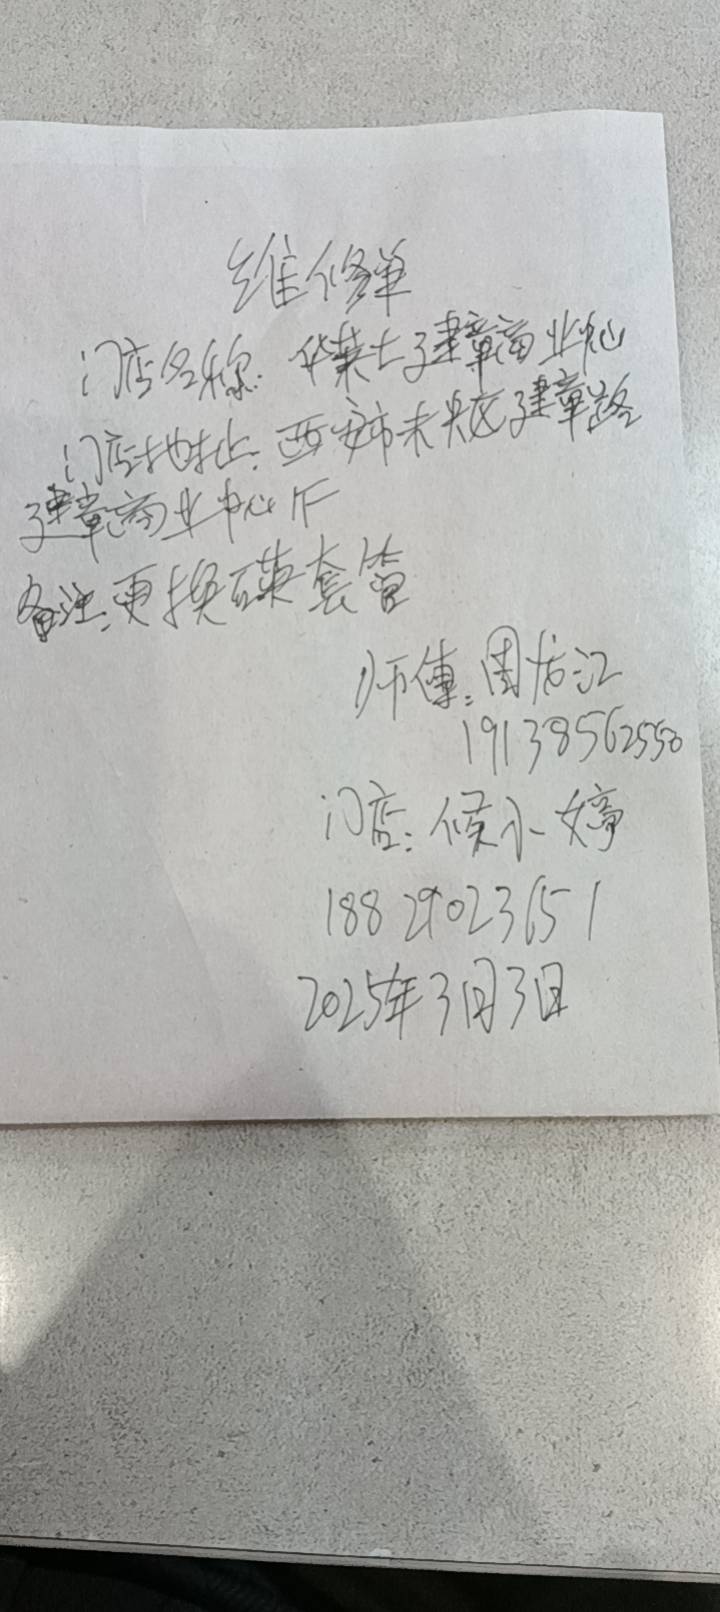 维修单
门店名称: 华莱士建章商业中心
门店地址: 西安市未央区建章路
建章商业中心1F
备注: 更换石英套管
师傅: 周龙江
19138562558
门店: 侯小婷
18829023651
2025年3月3日